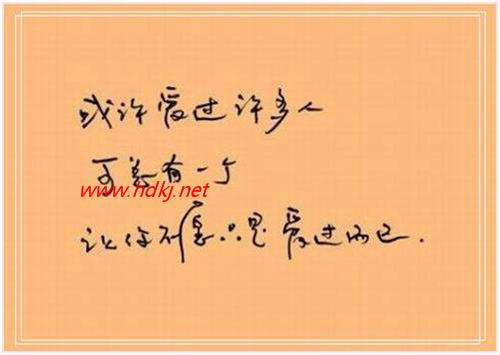 或许爱过许多人
可总有一个
www.hdkj.net
让你不愿只是爱过而已.